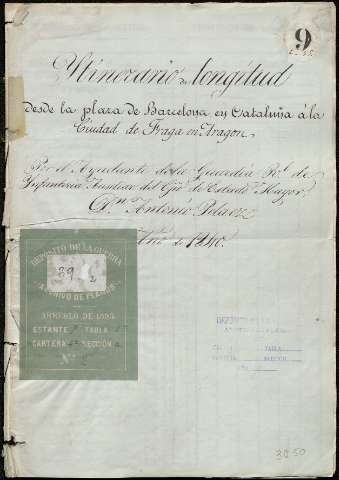 9
Itinerario de longitud
desde la plaza de Barcelona en Cataluña á la
Ciudad de Fraga en Aragon.
Por el Ayudante de la Guardia Rl. de
Infanteria Auxiliar del Cpo. de Estado Mayor,
Dn. Antonio Pelaez
de 1840.
DEPÓSITO DE LA GUERRA
39
ARCHIVO DE PLANOS
ARREGLO DE
ESTANTE TABLA
CARTERA SECCIÓN
Nº
TABLA
SECCION
3950